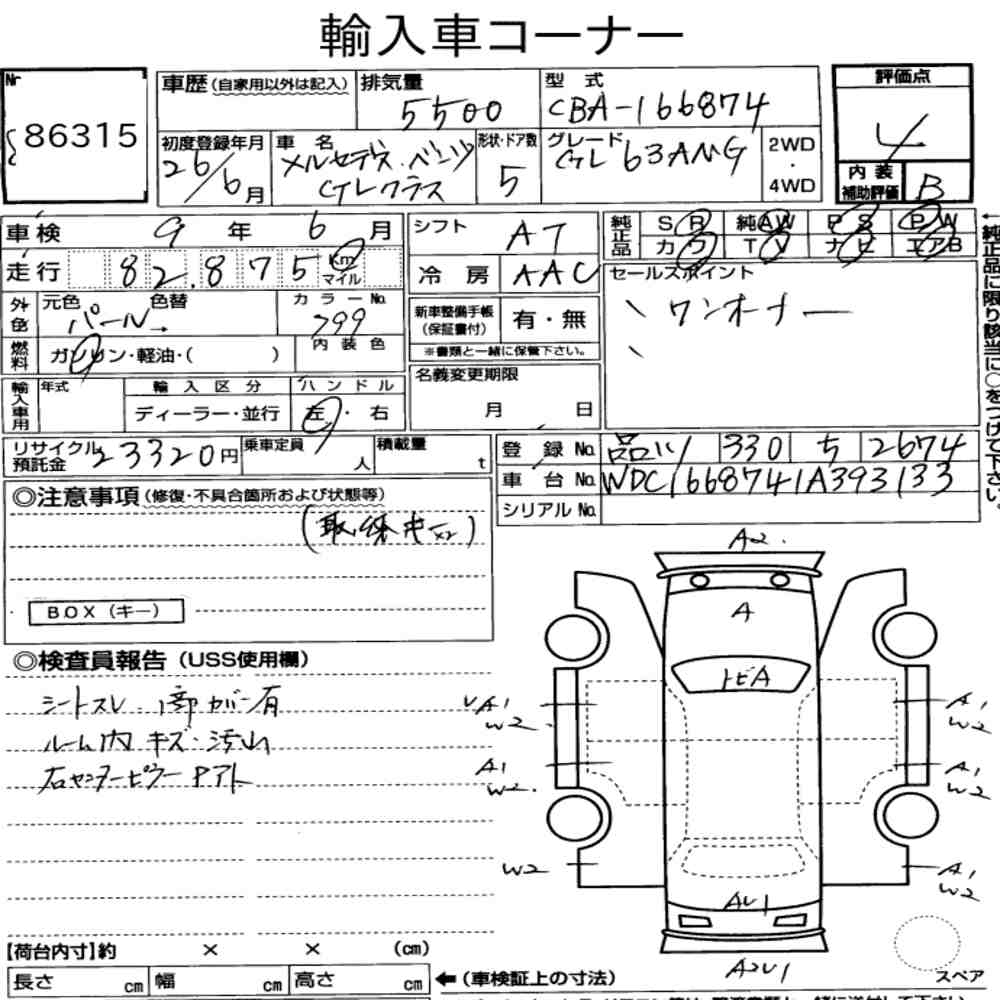 輸入車コーナー
Nr
86315
車歴(自家用以外は記入)
排気量
5500
型 式
CBA-166874
評価点
4
初度登録年月
26/6月
車 名
メルセデス・ベンツ
GLクラス
形状・ドア数
5
グレード
GL 63AMG
2WD
・
4WD
内 装
補助評価
B
車検 9 年 6 月
シフト AT
純正品
SR 純AW PS PW
カワ TV ナビ エアB
走行 82,875 Km マイル
冷 房 AAC
セールスポイント
ワンオーナー
外色
元色 色替
パール→
カラーNo.
799
新車整備手帳
(保証書付)
有・無
※書類と一緒に保管下さい。
燃料
ガソリン・軽油・( )
内 装 色
名義変更期限
月 日
輸入車用
年式
輸 入 区 分
ディーラー・並行
ハ ン ド ル
左・右
←純正品に限り該当に○をつけて下さい。
リサイクル
預託金
23320円
乗車定員
人
積載量
t
登 録 No. 品川 330 ち 2674
車 台 No. WDC1668741A393133
シリアル No.
◎注意事項(修復・不具合箇所および状態等)
BOX(キー)
◎検査員報告(USS使用欄)
シートスレ
有
ルーム内 キズ・汚れ
右センターピラー Pアト
A2
A
トビA
A1
W2
A1
W2
A1
W2
A1
W2
W2
A1
W2
AU1
A2U1
スペア
【荷台内寸】約 × × (cm)
長さ cm 幅 cm 高さ cm
←(車検証上の寸法)